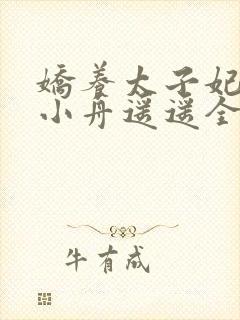 嬌养太子妃
小丹遥遥全
牛有成